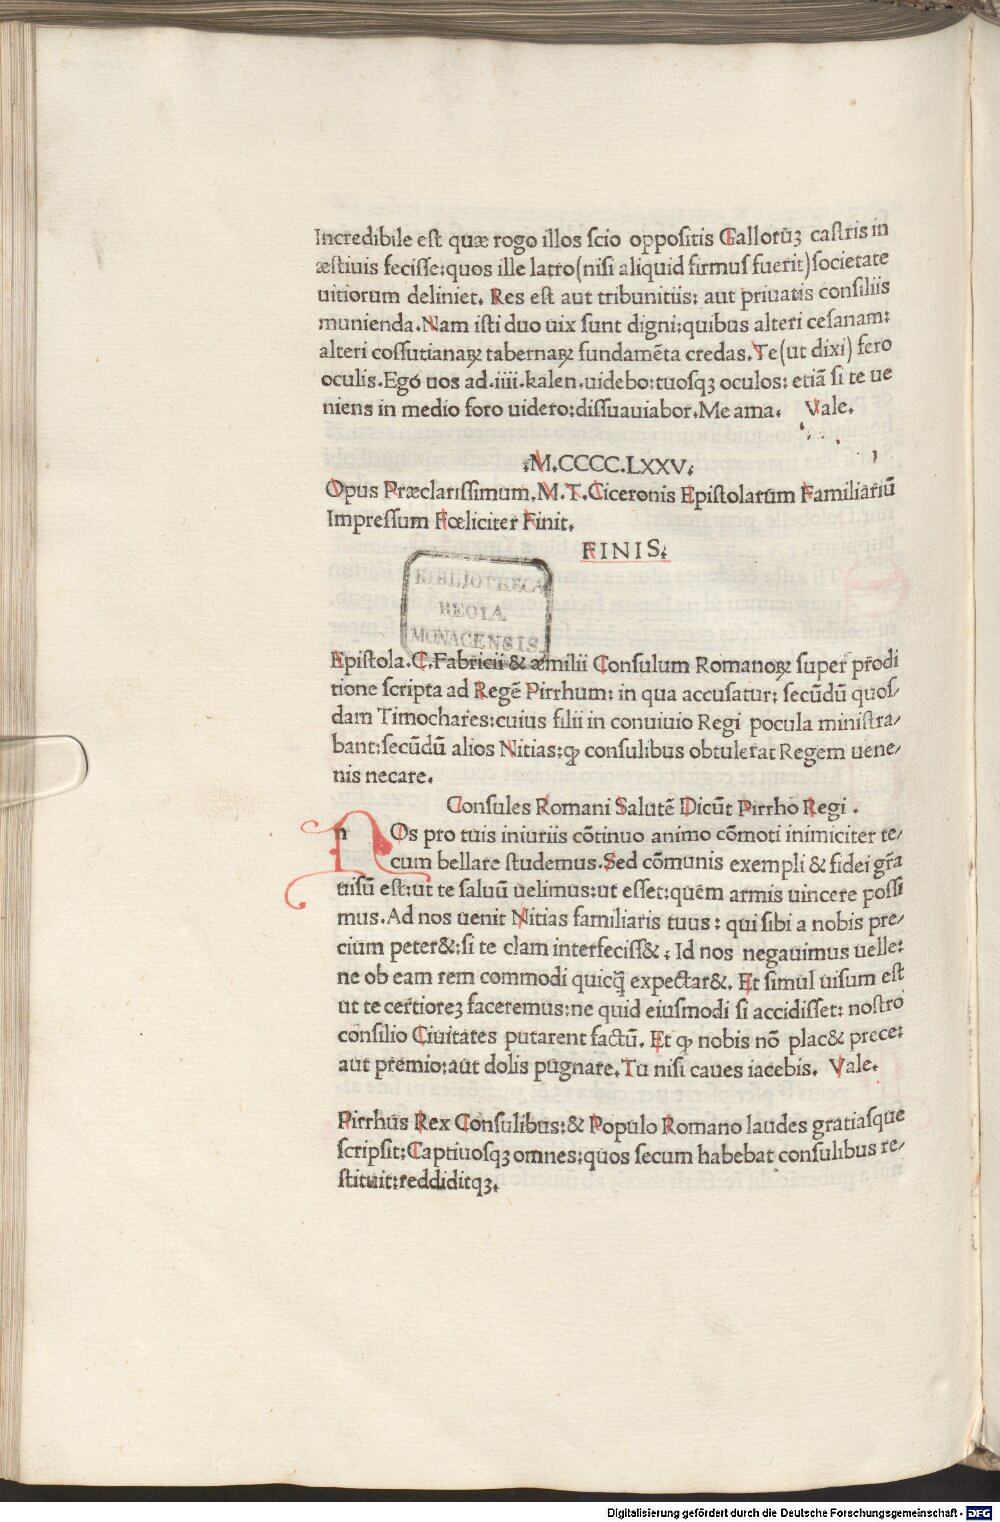 Incredibile eſt quæ rogo illos ſcio oppoſitis Galloꝛũꝫ caſtris in
æſtiuis feciſſe:quos ille latro(niſi aliquid firmuſ fuerit)ſocietate
uitiorum deliniet. Res eſt aut tribunitiis: aut priuatis conſiliis
munienda.Nam iſti duo uix ſunt digni:quibus alteri ceſanam:
alteri coſſutianaꝝ tabernaꝝ fundamẽta credas.Te(ut dixi) fero
oculis.Egó uos ad.iiii.kalen.uidebo:tuoſqꝫ oculos: etiã ſi te ue
niens in medio foro uidero:diſſuauiabor.Me ama. Vale.
.M.CCCC.LXXV.
Opus Præclariſſimum.M.T.Ciceronis Epiſtolarum Familiariũ
Impreſſum Fœliciter Finit.
FINIS.
BIBLIOTHECA
REGIA
MONACENSIS.
Epiſtola.C.Fabricii & æmilii Conſulum Romanoꝝ ſuper p̃rodi
tione ſcripta ad Regẽ Pirrhum: in qua accuſatur: ſecũdũ quoſ/
dam Timochares:cuius filii in conuiuio Regi pocula miniſtra/
bant:ſecũdũ alios Nitias:ꝙ conſulibus obtulerat Regem uene/
nis necare.
Conſules Romani Salutẽ Dicũt Pirrho Regi .
nOs pro tuis iniuriis cõtinuo animo cõmoti inimiciter te/
cum bellare ſtudemus.Sed cõmunis exempli & fidei gr̃a
uiſũ eſt:ut te ſaluũ uelimus:ut eſſet:quem armis uincere poſſi
mus.Ad nos uenit Nitias familiaris tuus : qui ſibi a nobis pre/
cium peter&:ſi te clam interfeciſſ& : Id nos negauimus uelle:
ne ob eam rem commodi quicq̃ expectar&. Et ſimul uiſum eſt
ut te certioreꝫ faceremus:ne quid eiuſmodi ſi accidiſſet: noſtro
conſilio Ciuitates putarent factũ. Et ꝙ nobis nõ plac& prece:
aut premio:aut dolis pugnare.Tu niſi caues iacebis. Vale.
Pirrhus Rex Conſulibus:& Populo Romano laudes gratiaſque
ſcripſit:Captiuoſqꝫ omnes:quos ſecum habebat conſulibus re/
ſtituit:reddiditqꝫ.
Digitalisierung gefördert durch die Deutsche Forschungsgemeinschaft - DFG